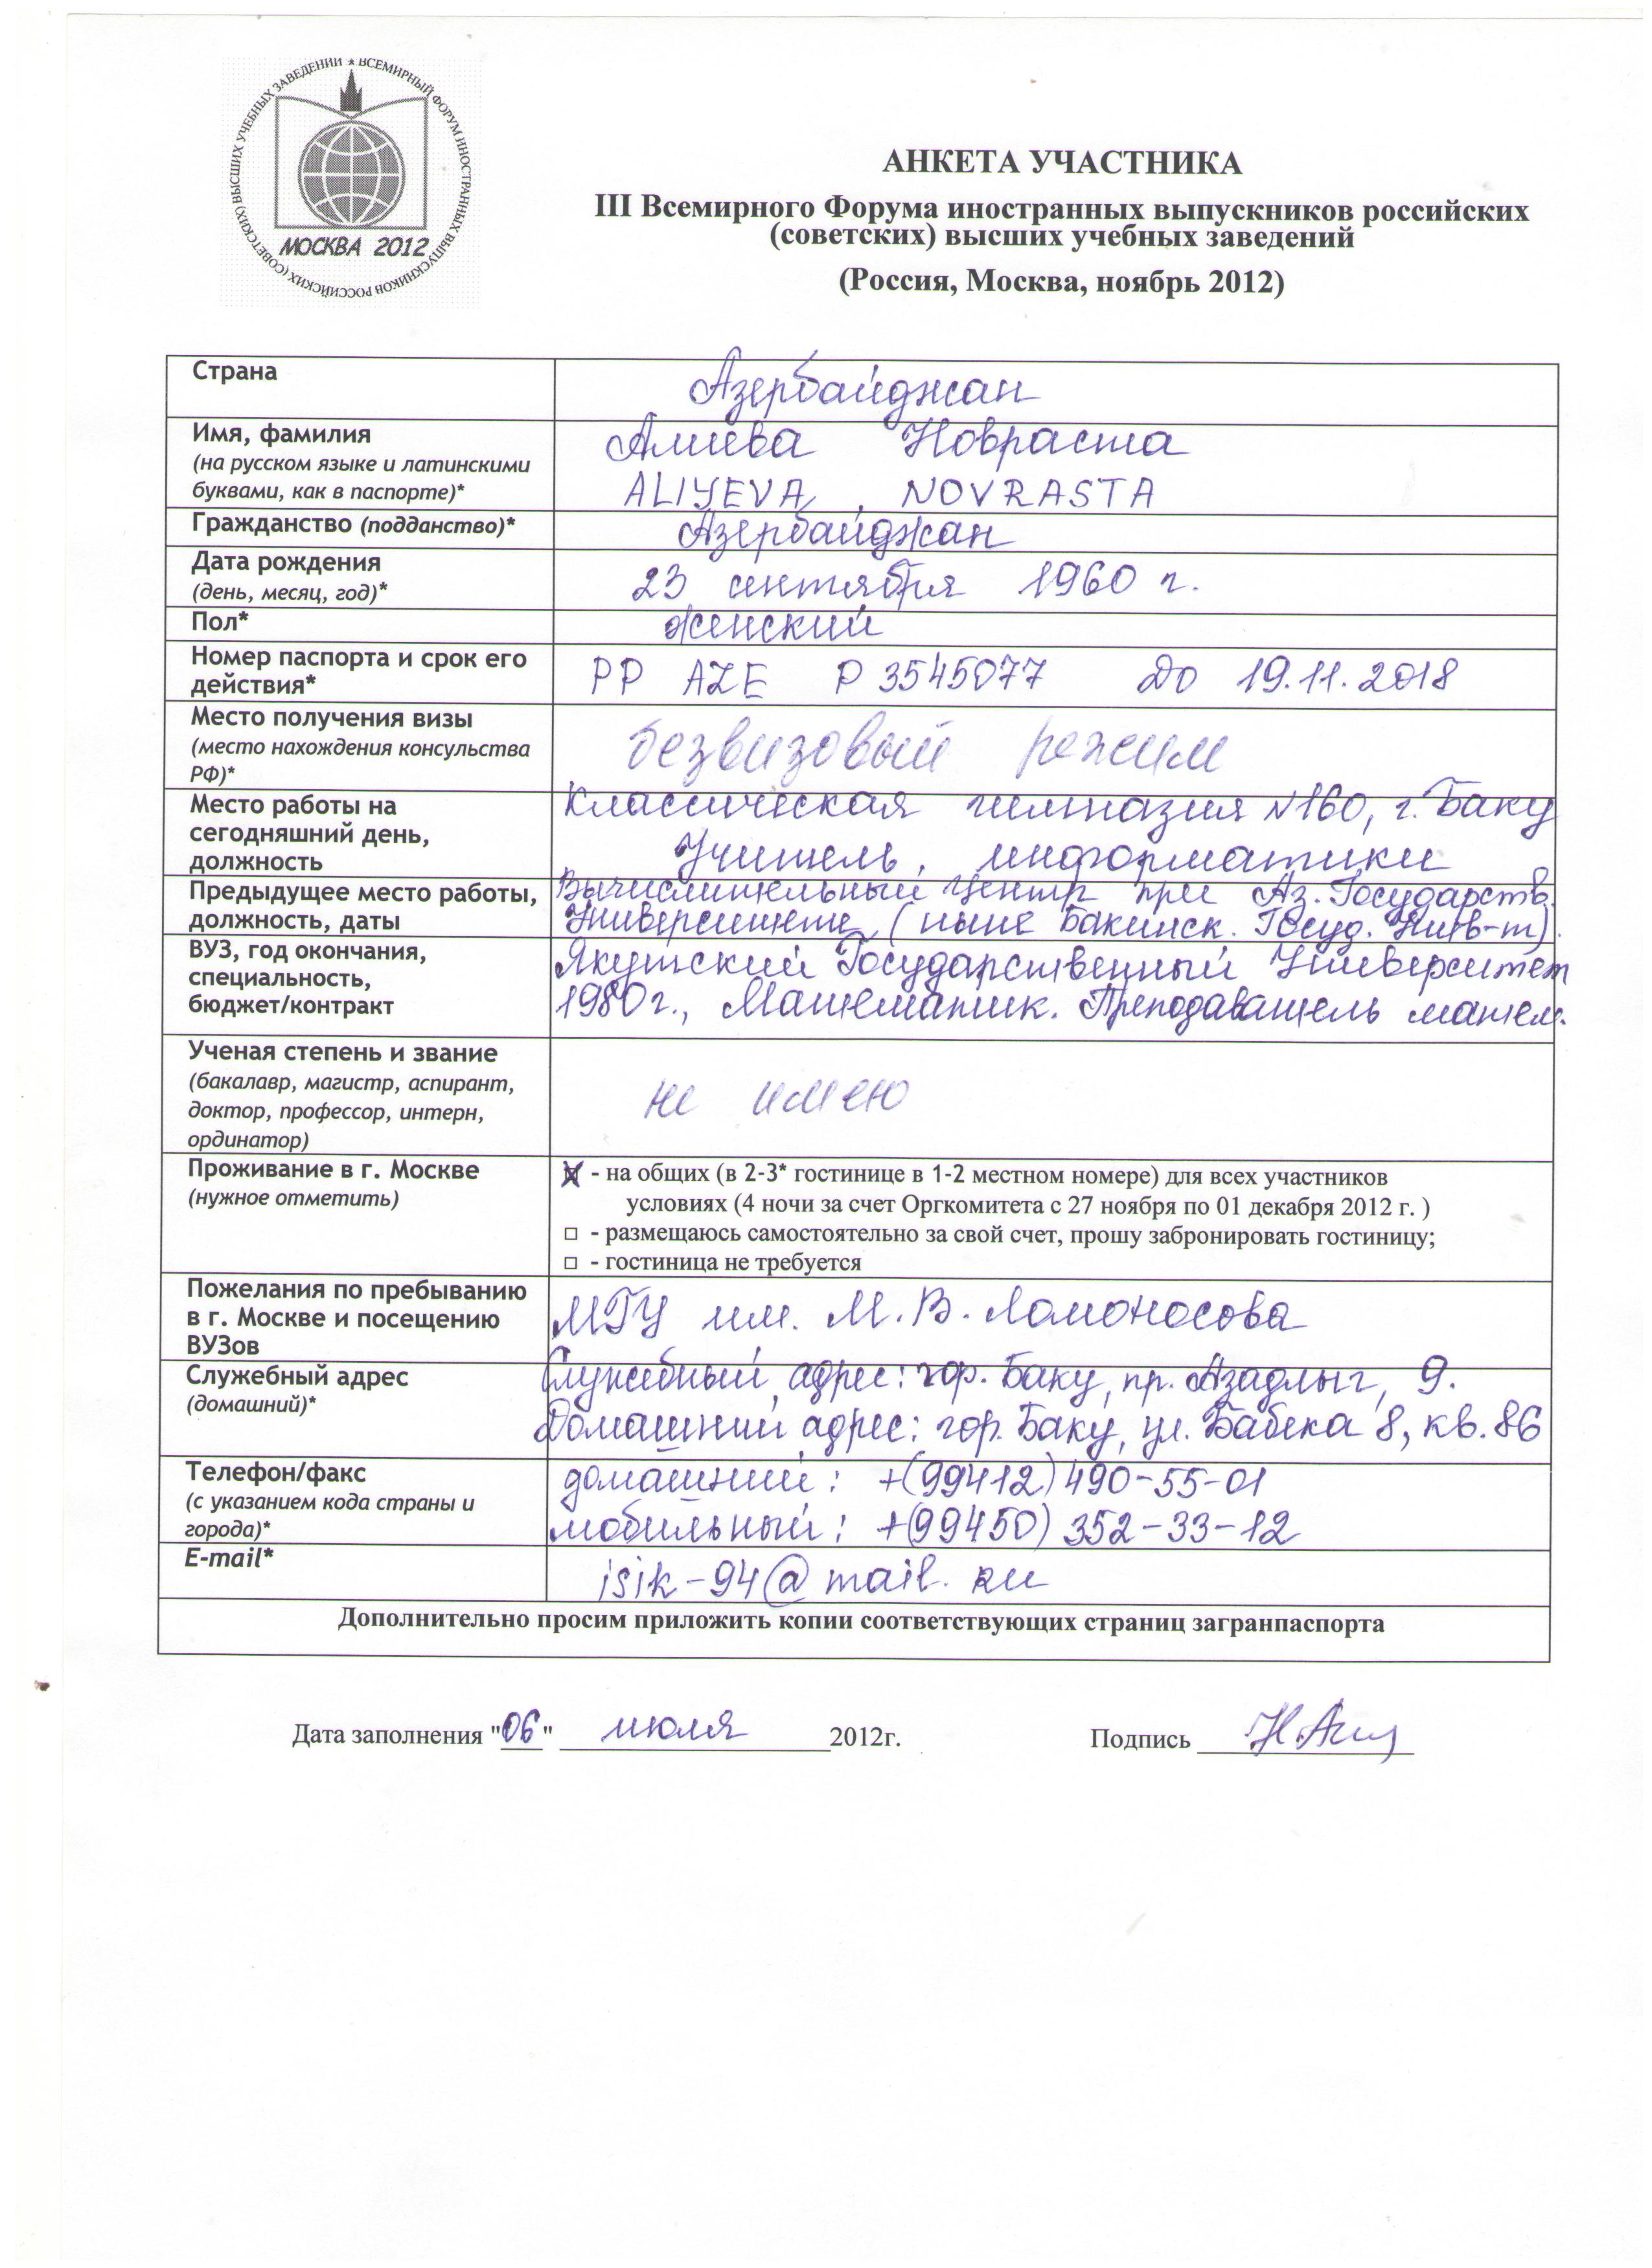 ВСЕМИРНЫЙ ФОРУМ ИНОСТРАННЫХ ВЫПУСКНИКОВ РОССИЙСКИХ (СОВЕТСКИХ) ВЫСШИХ УЧЕБНЫХ ЗАВЕДЕНИЙ
МОСКВА 2012
АНКЕТА УЧАСТНИКА
III Всемирного Форума иностранных выпускников российских
(советских) высших учебных заведений
(Россия, Москва, ноябрь 2012)
Страна
Азербайджан
Имя, фамилия
(на русском языке и латинскими
буквами, как в паспорте)*
Алиева Новраста
ALIYEVA, NOVRASTA
Гражданство (подданство)*
Азербайджан
Дата рождения
(день, месяц, год)*
23 сентября 1960 г.
Пол*
женский
Номер паспорта и срок его
действия*
PP AZE P 3545077 До 19.11.2018
Место получения визы
(место нахождения консульства
РФ)*
безвизовый режим
Место работы на
сегодняшний день,
должность
Классическая гимназия N160, г. Баку
Учитель, информатики
Предыдущее место работы,
должность, даты
Вычислительный Центр при Аз. Государств.
Университете, (ныне Бакинск. Госуд. Унив-т).
ВУЗ, год окончания,
специальность,
бюджет/контракт
Якутский Государственный Университет
1980г., Математик. Преподаватель матем.
Ученая степень и звание
(бакалавр, магистр, аспирант,
доктор, профессор, интерн,
ординатор)
не имею
Проживание в г. Москве
(нужное отметить)
- на общих (в 2-3* гостинице в 1-2 местном номере) для всех участников
условиях (4 ночи за счет Оргкомитета с 27 ноября по 01 декабря 2012 г. )
- размещаюсь самостоятельно за свой счет, прошу забронировать гостиницу;
- гостиница не требуется
Пожелания по пребыванию
в г. Москве и посещению
ВУЗов
МГУ им. М.В. Ломоносова
Служебный адрес
(домашний)*
Служебный адрес: гор. Баку, пр. Азадлыг, 9.
Домашний адрес: гор. Баку, ул. Бабека 8, кв. 86
Телефон/факс
(с указанием кода страны и
города)*
домашний: +(99412) 490-55-01
мобильный: +(99450) 352-33-12
E-mail*
isik-94@mail.ru
Дополнительно просим приложить копии соответствующих страниц загранпаспорта
Дата заполнения "06" июля 2012г. Подпись